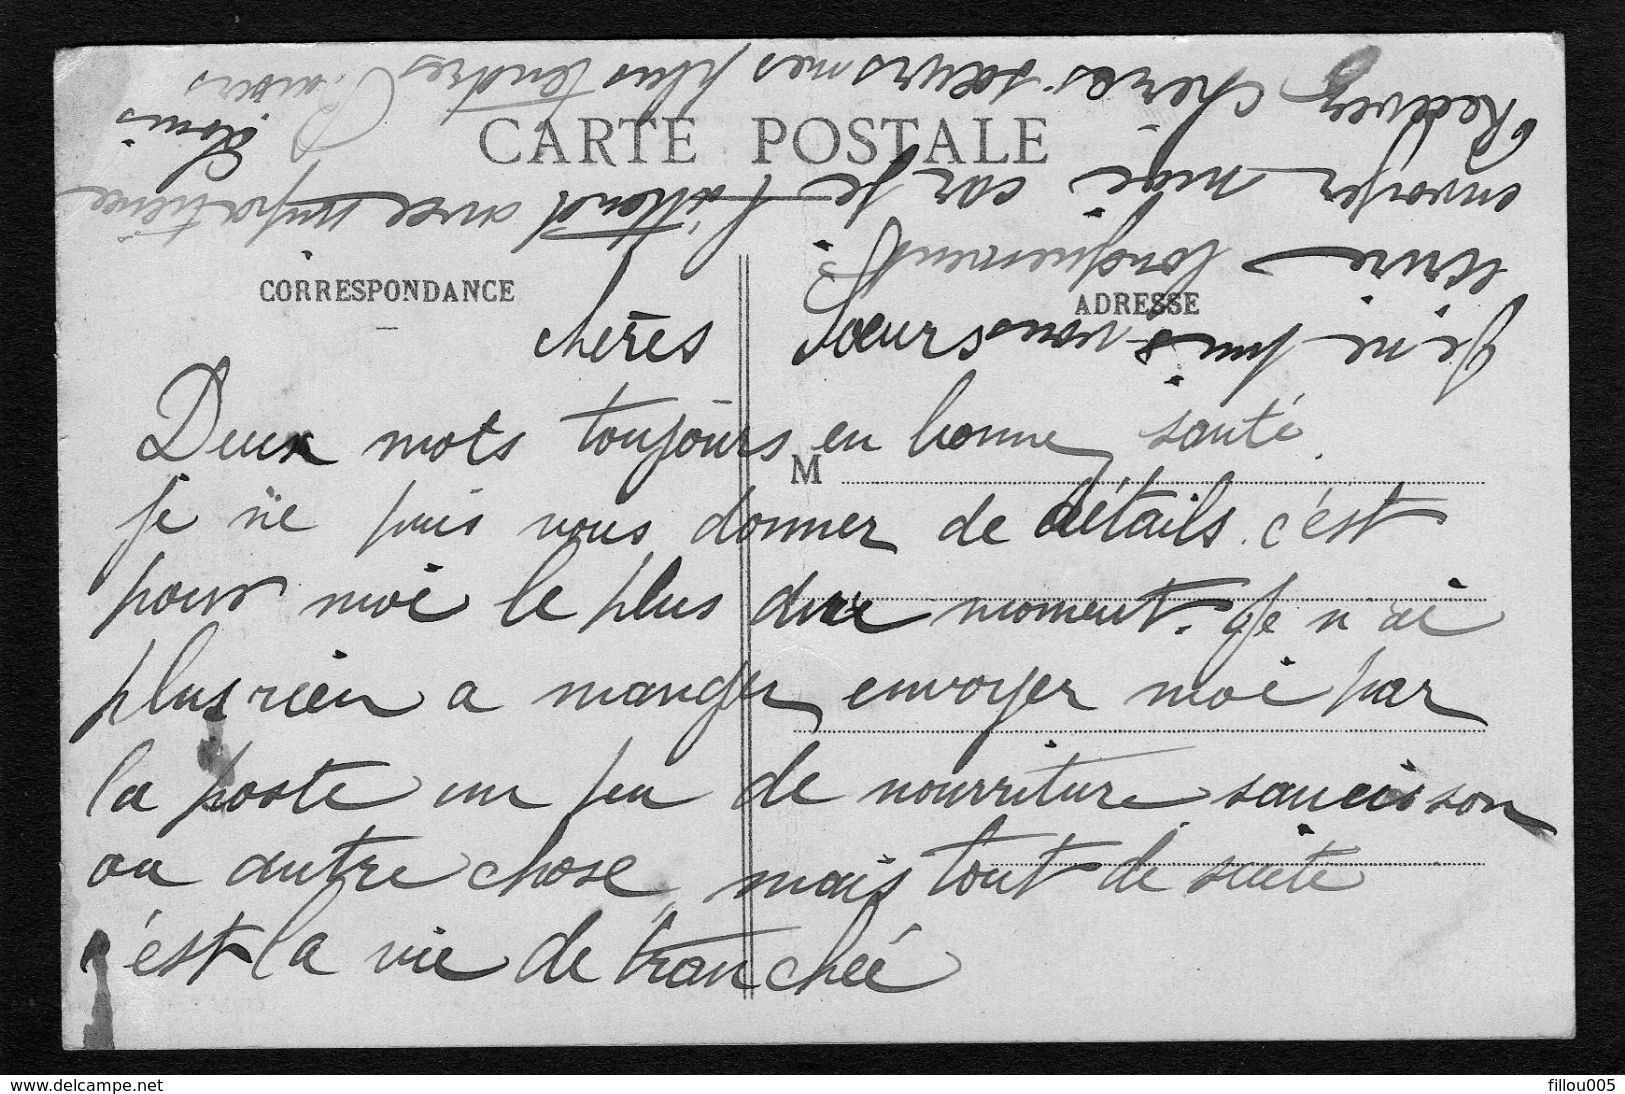 CARTE POSTALE
CORRESPONDANCE
ADRESSE
M
chères Soeurs
Deux mots toujours en bonne santé.
je ne puis vous donner de détails. c'est
pour moi le plus dure moment. Je n'ai
plus rien a manger, envoyer moi par
la poste un peu de nourriture saucisson
ou autre chose, mais tout de suite
c'est la vie de tranchée
Je ne puis vous
écrire longuement.
envoyer moi car je l'attend avec impatience
Recevez chères soeurs mes plus tendres Baisers
Louis
delcampe.net
fillou005